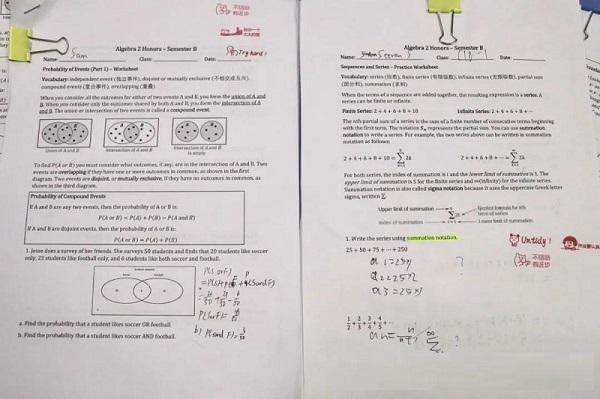 不错哟
有进步
Algebra 2 Honors – Semester B
Name: Sam Class: Date:
Try hard!
Probability of Events (Part 1) – Worksheet
Vocabulary: independent event (独立事件), disjoint or mutually exclusive (不相交或互斥),
compound events (复合事件), overlapping (重叠)
When you consider all the outcomes for either of two events A and B, you form the union of A and
B. When you consider only the outcomes shared by both A and B, you form the intersection of A
and B. The union or intersection of two events is called a compound event.
Union of A and B
Intersection of A and B
Intersection of A and B
is empty
To find P(A or B) you must consider what outcomes, if any, are in the intersection of A and B. Two
events are overlapping if they have one or more outcomes in common, as shown in the first
diagram. Two events are disjoint, or mutually exclusive, if they have no outcomes in common, as
shown in the third diagram.
Probability of Compound Events
If A and B are any two events, then the probability of A or B is:
P(A or B) = P(A) + P(B) – P(A and B)
If A and B are disjoint events, then the probability of A or B is:
P(A or B) = P(A) + P(B)
1. Jenne does a survey of her friends. She surveys 50 students and finds that 20 students like soccer
only, 23 students like football only, and 6 students like both soccer and football.
a. Find the probability that a student likes soccer OR football.
b. Find the probability that a student likes soccer AND football.
Algebra 2 Honors – Semester B
Name: Steven Class: Date:
Sequences and Series – Practice Worksheet
Vocabulary: series (级数), finite series (有限级数), infinite series (无限级数), partial sum
(部分和), summation (求和)
When the terms of a sequence are added together, the resulting expression is a series. A
series can be finite or infinite.
Finite Series: 2 + 4 + 6 + 8 + 10 Infinite Series: 2 + 4 + 6 + 8 + ⋯
The nth partial sum of a series is the sum of a finite number of consecutive terms beginning
with the first term. The notation Sn represents the partial sum. You can use summation
notation to write a series. For example, the two series above can be written in summation
notation as follows:
2 + 4 + 6 + 8 + 10 = ∑ 2k 2 + 4 + 6 + 8 + ⋯ = ∑ 2k
For both series, the index of summation is i and the lower limit of summation is 1. The
upper limit of summation is 5 for the finite series and ∞(infinity) for the infinite series.
Summation notation is also called sigma notation because it uses the uppercase Greek letter
sigma, written Σ.
Upper limit of summation
Explicit formula for kth
term of series
Index of summation
Lower limit of summation
1. Write the series using summation notation.
Untidy!
25 + 50 + 75 + ⋯ + 250
不错哟
有进步
1/2 + 2/3 + 3/4 + 4/5 + ⋯